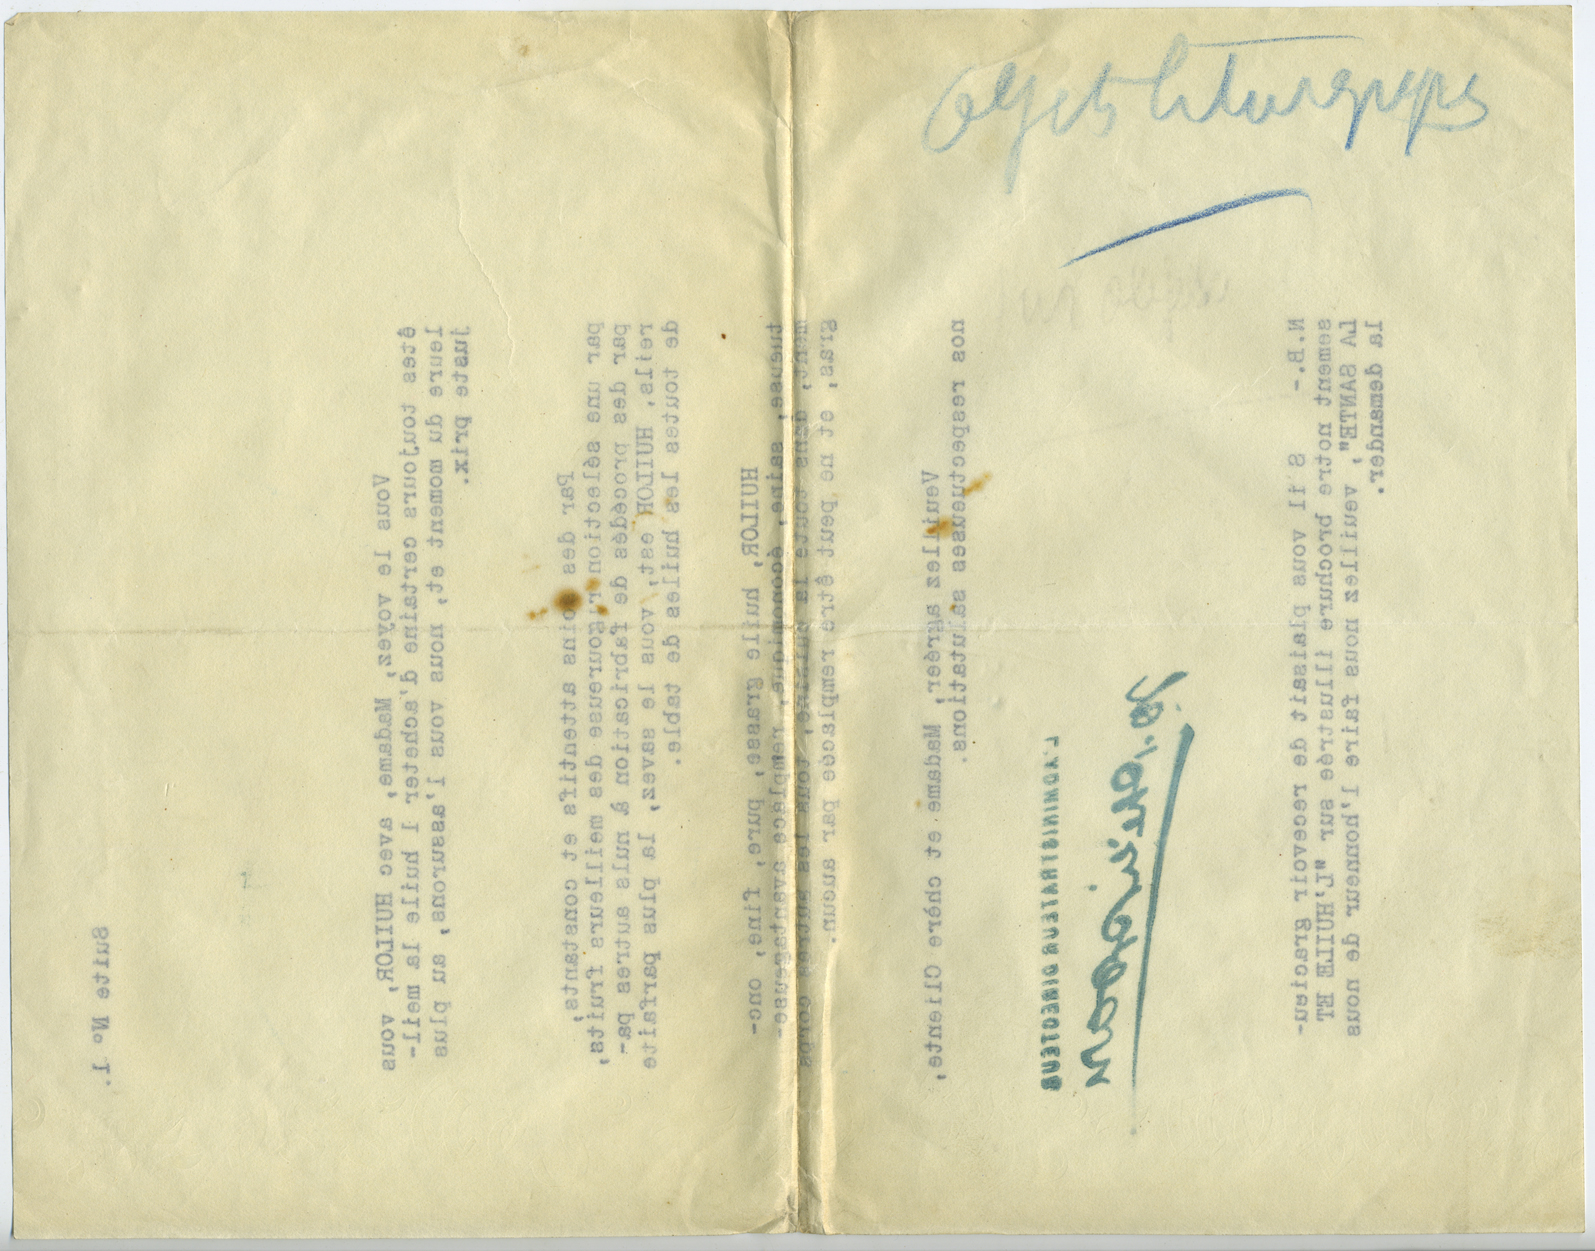 Suite N° 1.
Vous le voyez, Madame, avec HUILOR, vous
êtes toujours certaine d'acheter l'huile la meil-
leure du moment et, nous vous l'assurons, au plus
juste prix.
Par des soins attentifs et constants,
par une sélection rigoureuse des meilleurs fruits,
par des procédés de fabrication à nuls autres pa-
reils, HUILOR est, vous le savez, la plus parfaite
de toutes les huiles de table.
HUILOR, huile grasse, pure, fine, onc-
tueuse, saine, économique, remplace avantageuse-
ment, dans toute la cuisine, tous les autres corps
gras, et ne peut être remplacée par aucun.
Veuillez agréer, Madame et chère Cliente,
nos respectueuses salutations.
L'ADMINISTRATEUR DIRECTEUR
N.B.- S'il vous plaisait de recevoir gracieu-
sement notre brochure illustrée sur "L'HUILE ET
LA SANTE", veuillez nous faire l'honneur de nous
la demander.